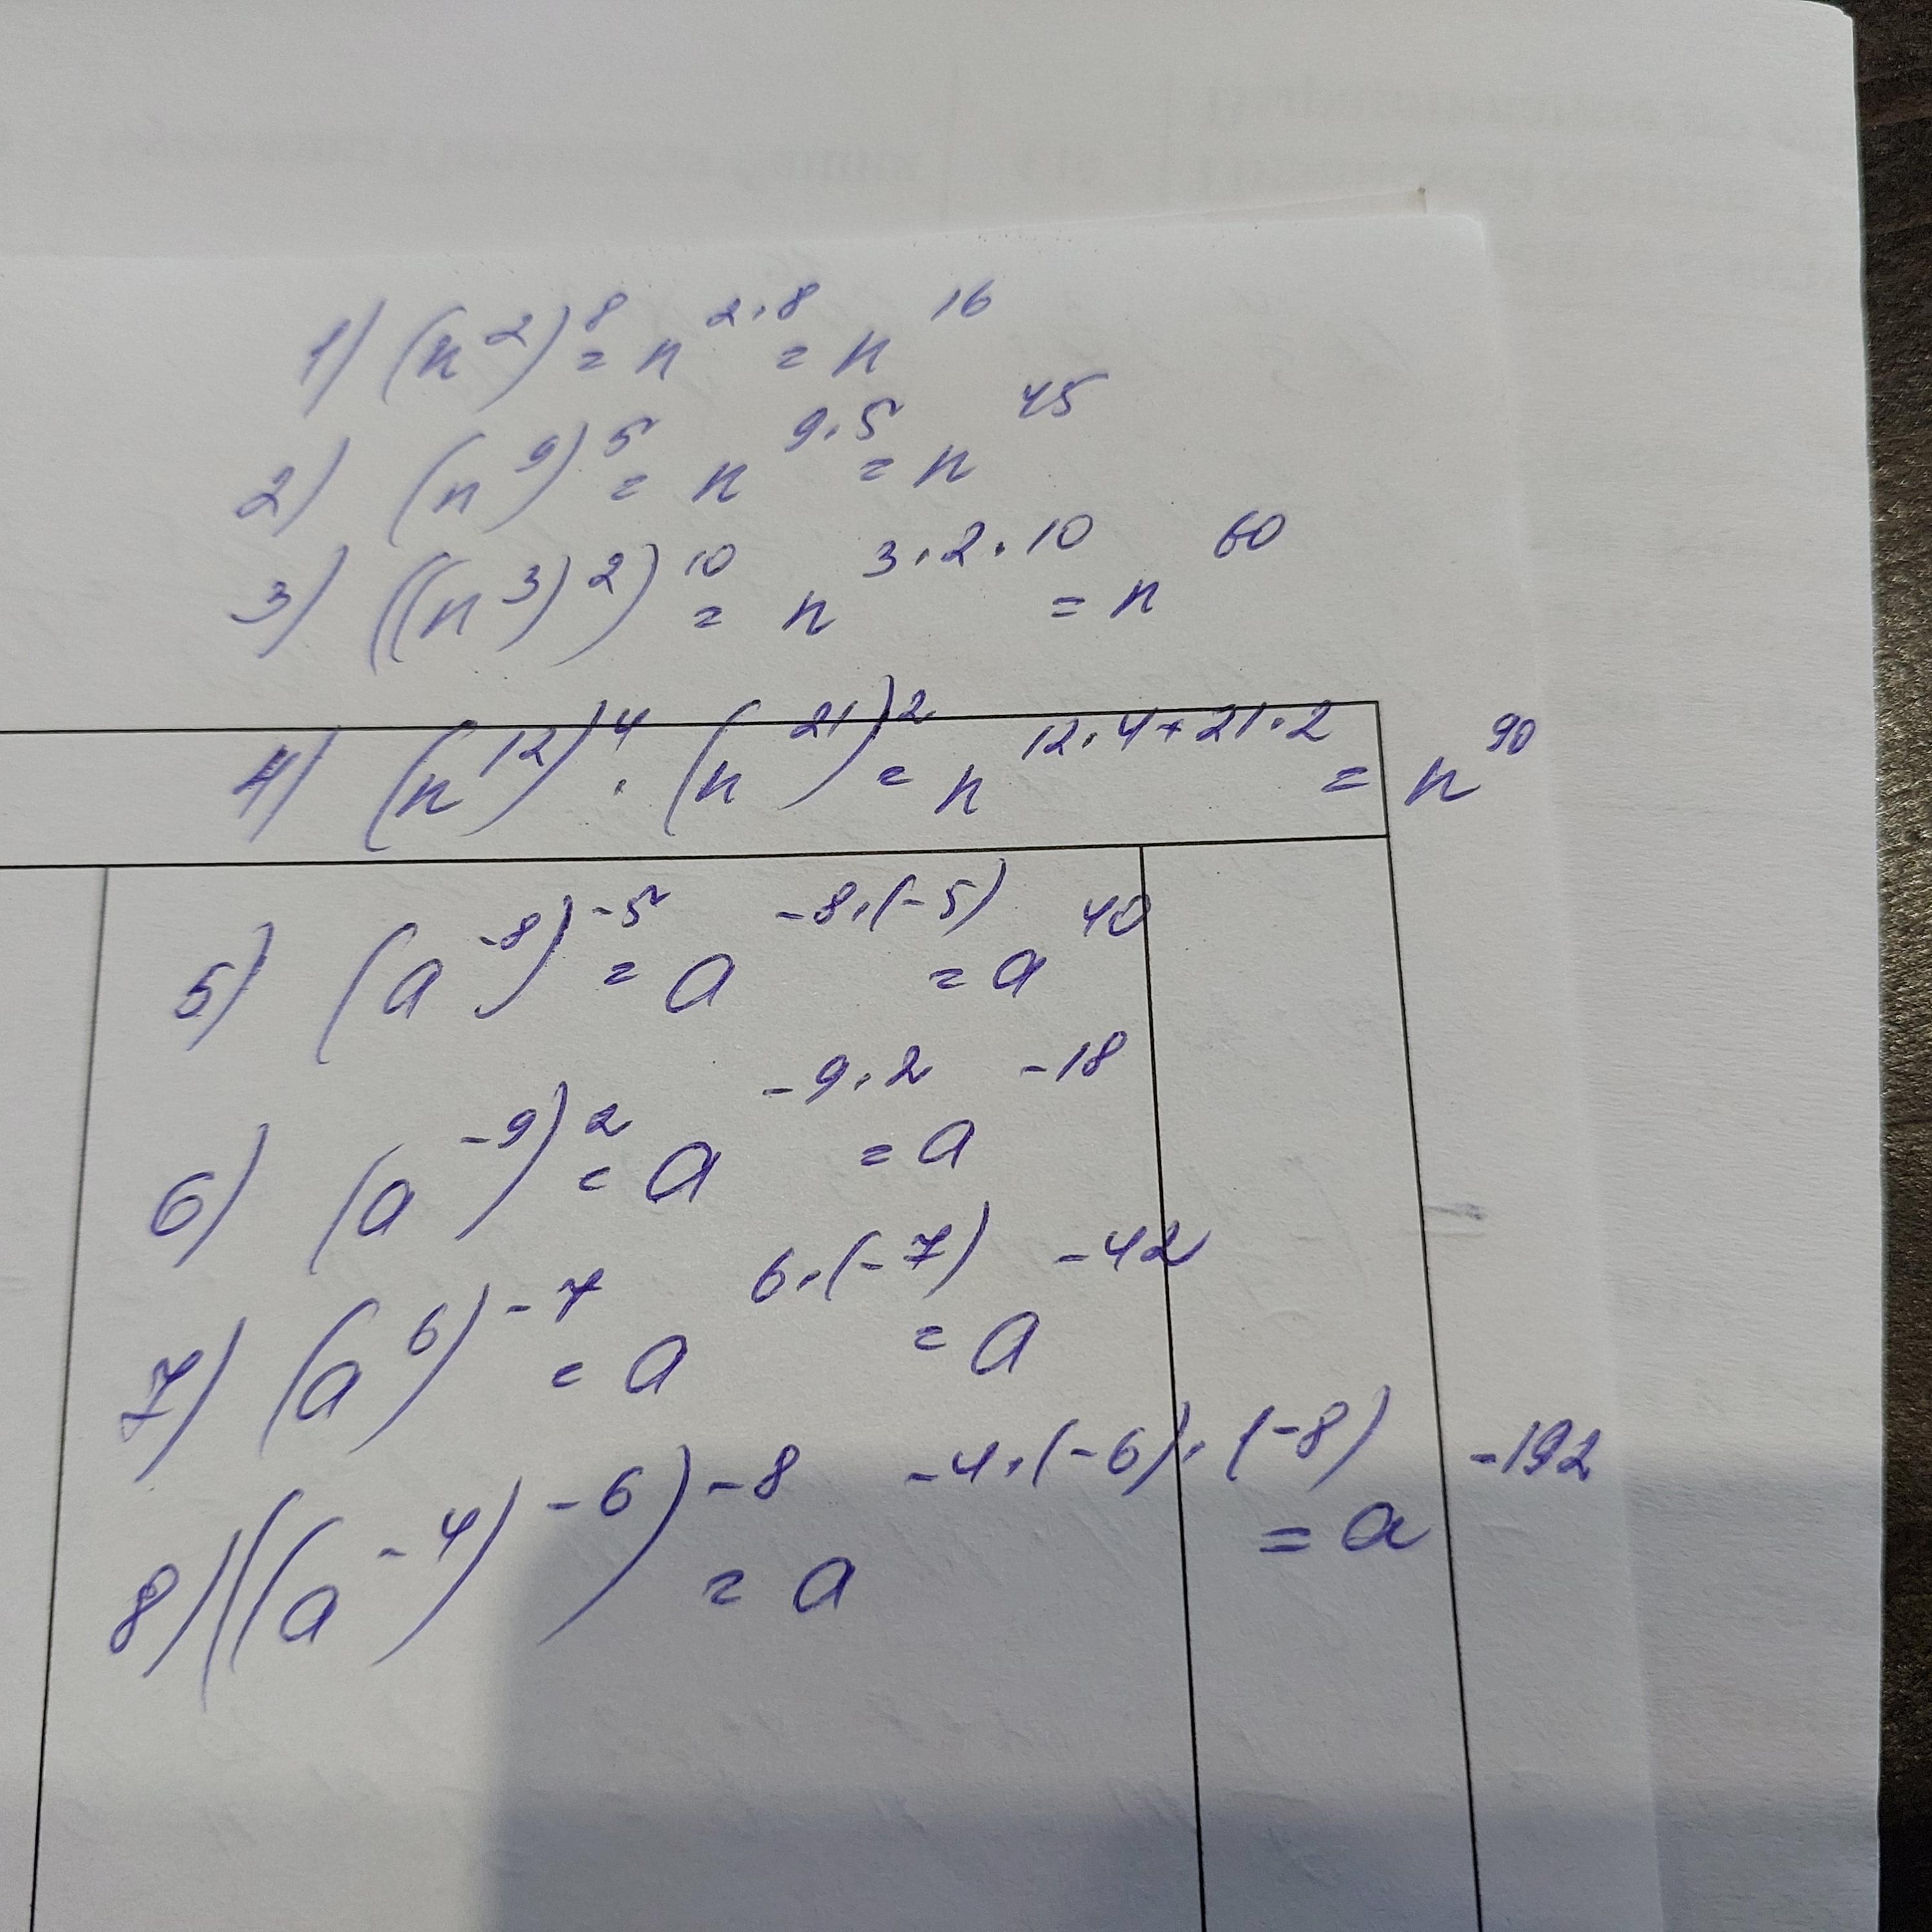 1) (n²)⁸ = n²·⁸ = n¹⁶
2) (n⁹)⁵ = n⁹·⁵ = n⁴⁵
3) ((n³)²)¹⁰ = n³·²·¹⁰ = n⁶⁰
4) (n¹²)⁴ · (n²¹)² = n¹²·⁴⁺²¹·² = n⁹⁰
5) (a⁻⁸)⁻⁵ = a⁻⁸·⁽⁻⁵⁾ = a⁴⁰
6) (a⁻⁹)² = a⁻⁹·² = a⁻¹⁸
7) (a⁶)⁻⁷ = a⁶·⁽⁻⁷⁾ = a⁻⁴²
8) ((a⁻⁴)⁻⁶)⁻⁸ = a⁻⁴·⁽⁻⁶⁾·⁽⁻⁸⁾ = a⁻¹⁹²